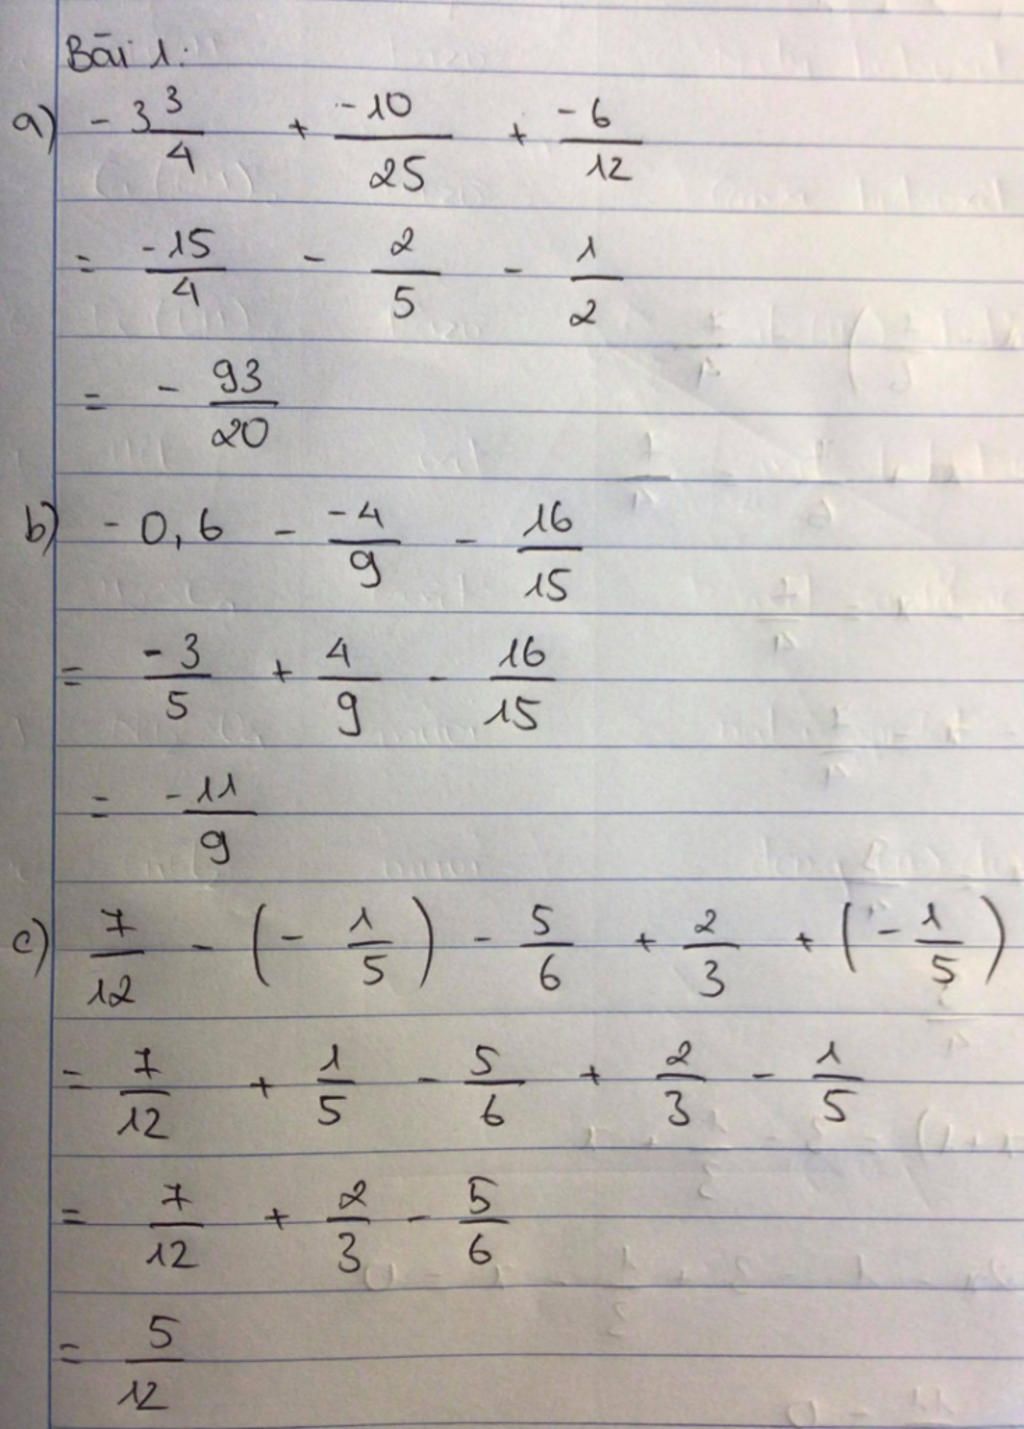 Bài 1:
a) - 3 3/4 + -10/25 + -6/12
= -15/4 - 2/5 - 1/2
= - 93/20
b) - 0,6 - -4/9 - 16/15
= -3/5 + 4/9 - 16/15
= -11/9
c) 7/12 - (- 1/5) - 5/6 + 2/3 + (- 1/5)
= 7/12 + 1/5 - 5/6 + 2/3 - 1/5
= 7/12 + 2/3 - 5/6
= 5/12